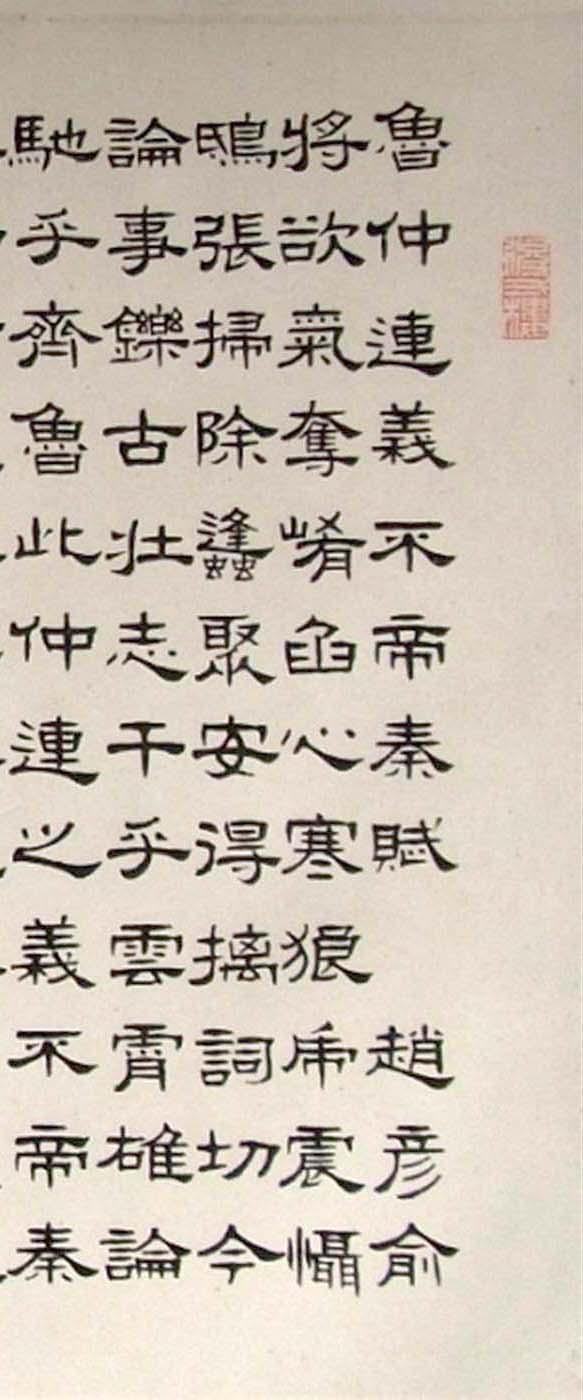 魯仲連義不帝秦賦 趙彦俞
將欲氣奪崤函心寒狼虎震懾
鴟張掃除蠭聚安得摛詞切今
論事鑠古壯志干乎雲霄雄論
馳乎齊魯此仲連之義不帝秦